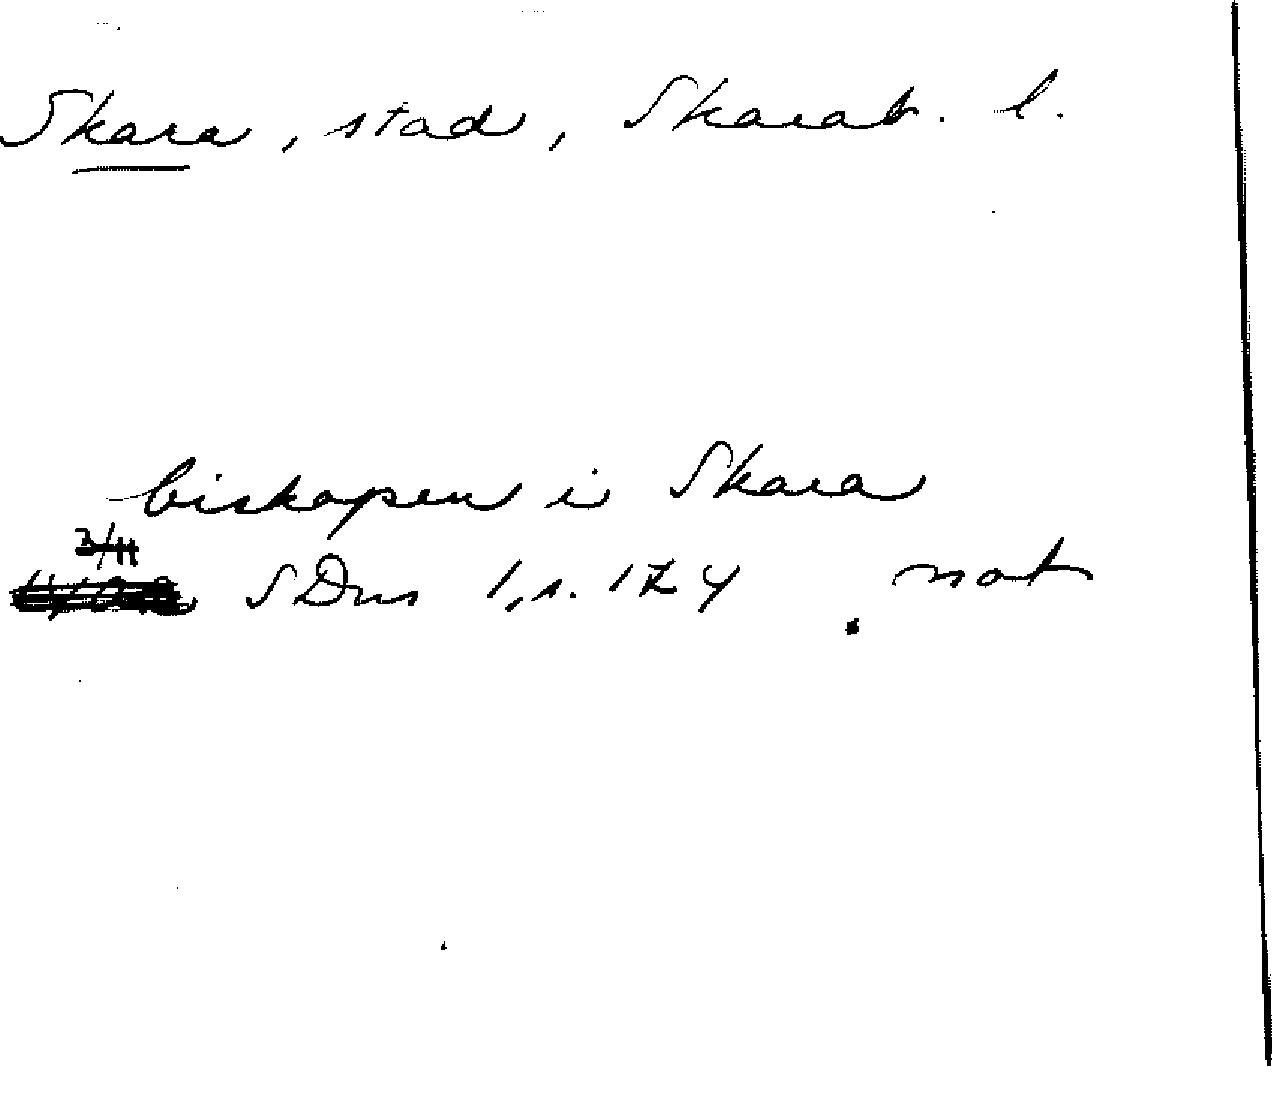 Skara, stad, Skarab. l.
biskopen i Skara
SDns 1, s. 174 not